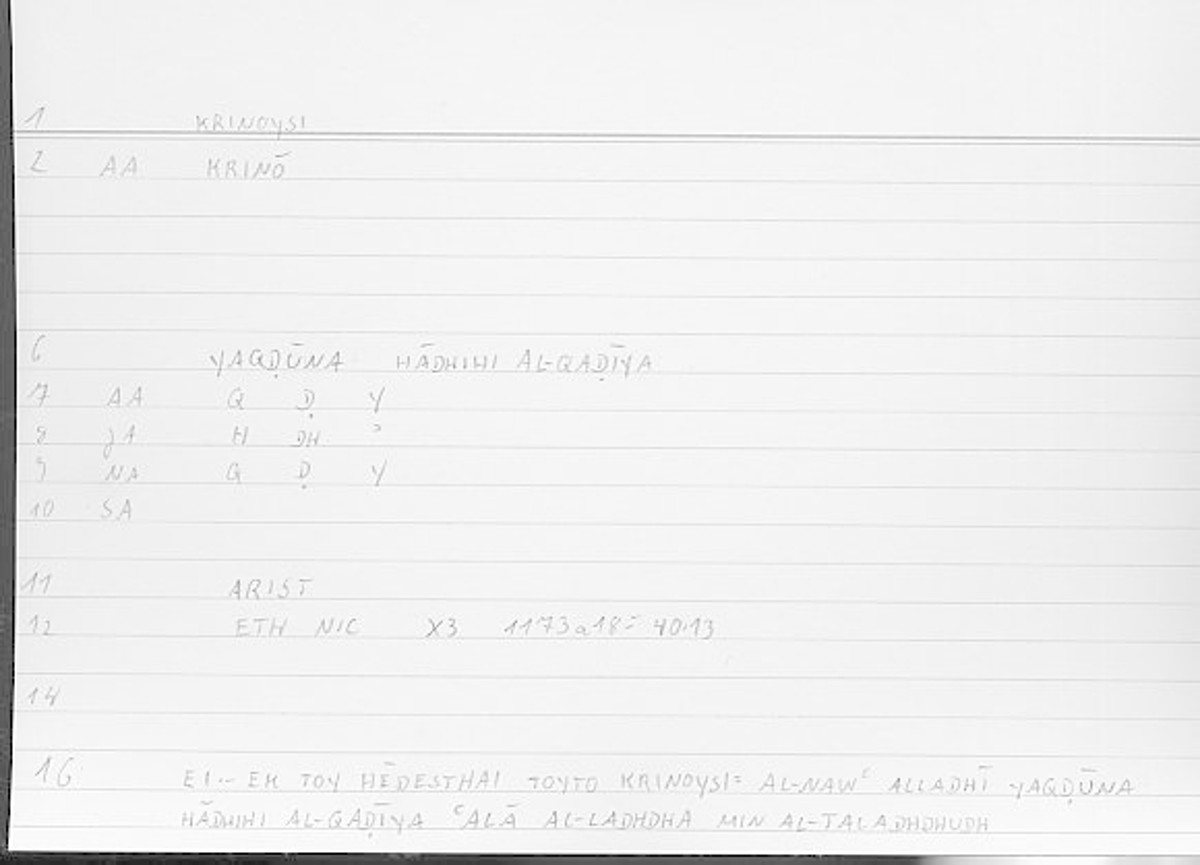 1 KRINOYSI
2 AA KRINŌ
6 YAQḌŪNA HĀDHIHI AL-QAḌĪYA
7 AA Q Ḍ Y
8 JA H DH ʾ
9 NA Q Ḍ Y
10 SA
11 ARIST
12 ETH NIC X3 1173a18= 40.13
14
16 EI... EK TOY HĒDESTHAI TOYTO KRINOYSI= AL-NAWʿ ALLADHĪ YAQḌŪNA
HĀDHIHI AL-QAḌĪYA ʿALĀ AL-LADHDHA MIN AL-TALADHDHUDH